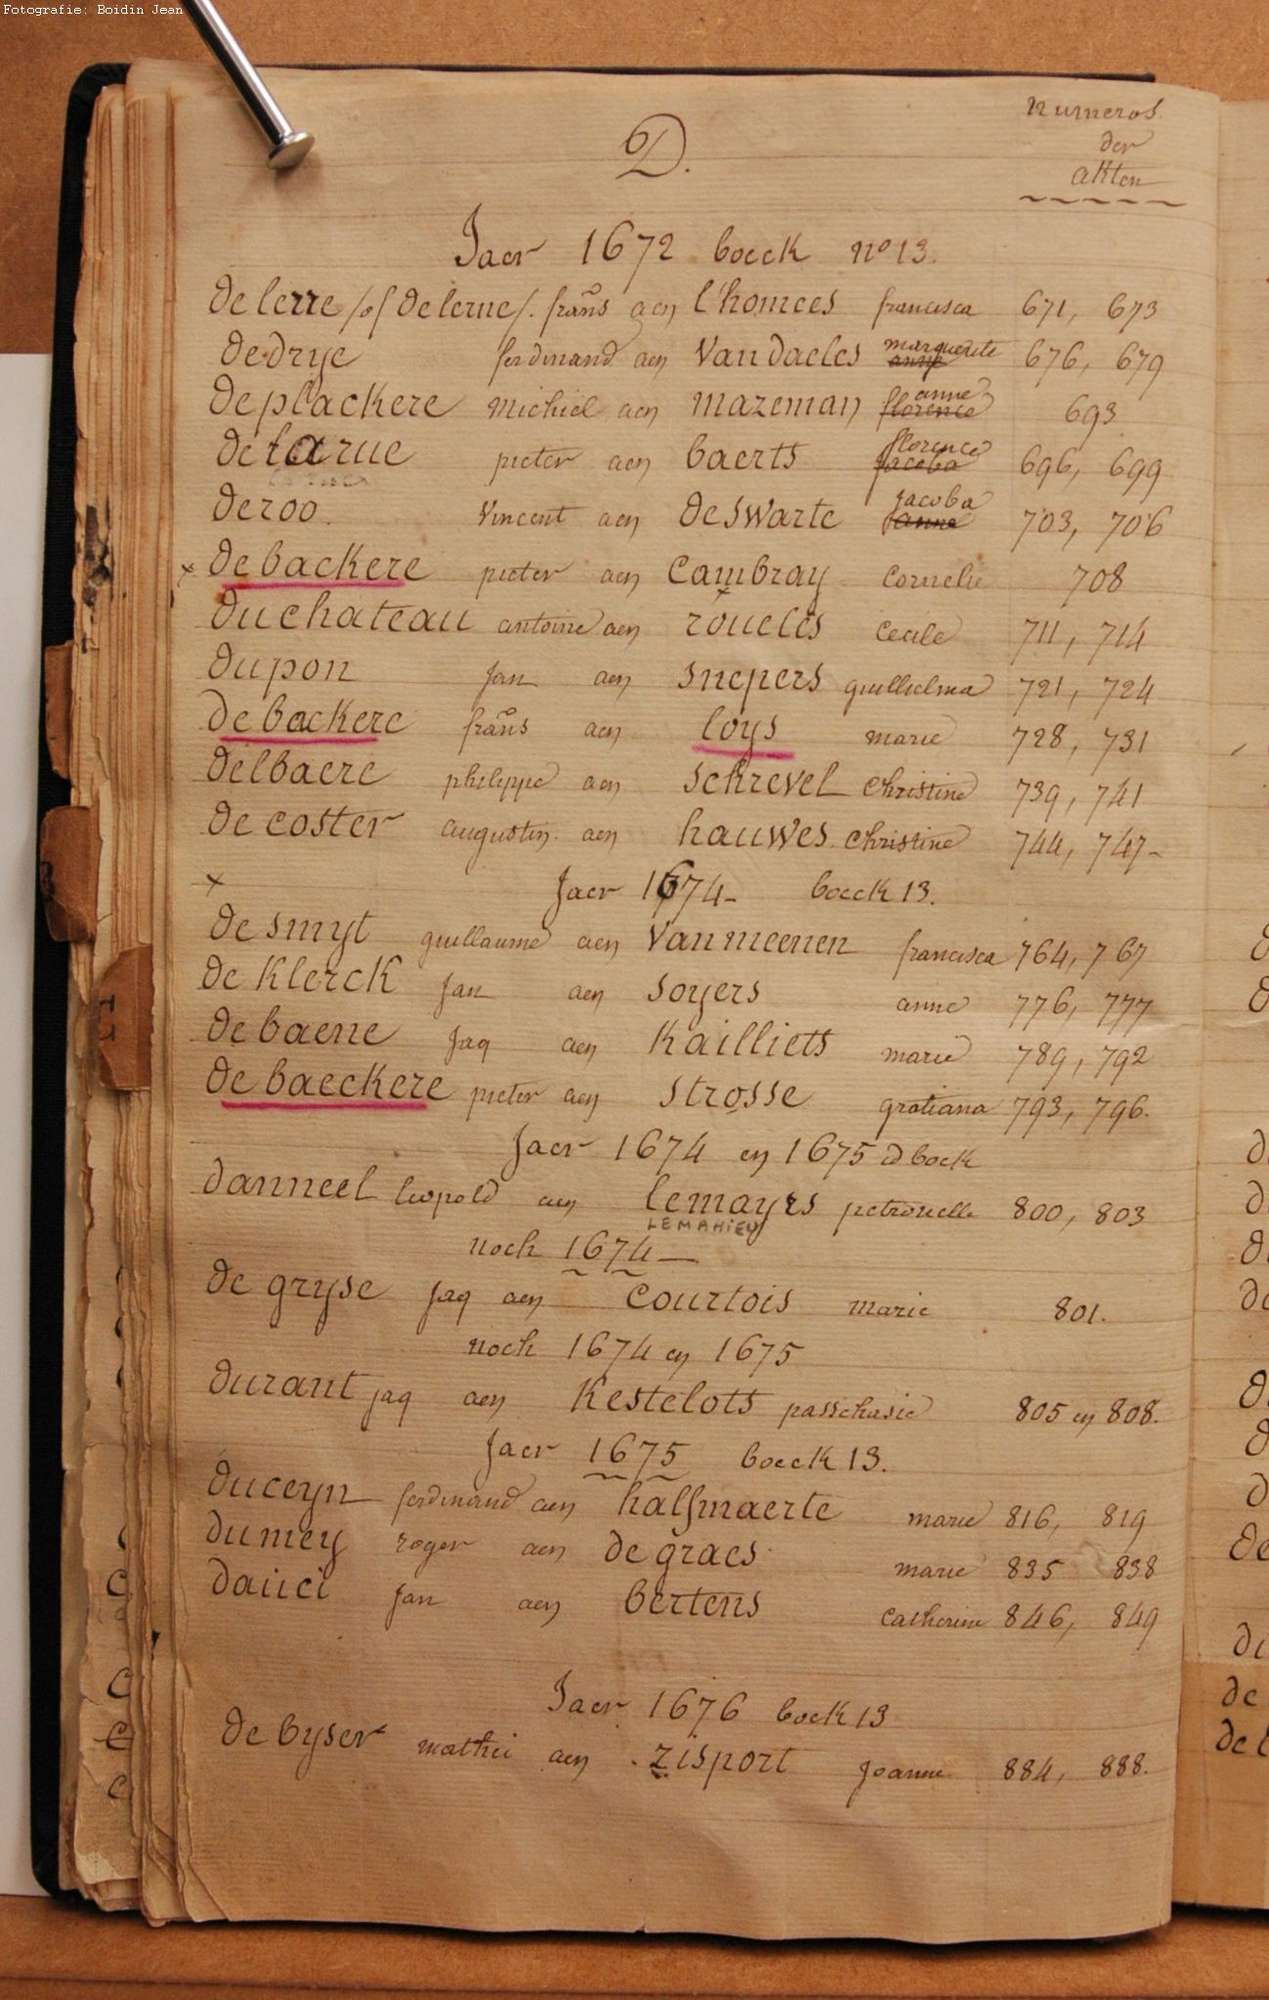 Fotografie: Boidin Jean
D.
numeros
der
akten
Jaer 1672 boeck nº 13.
delerre /of delerue/. frans aen l'homees francisca 671, 673
dedrye ferdinand aen Vandaeles marguerite anne 676, 679
deplackere michiel aen mazeman anne florence 693
delarue pieter aen baerts florence jacoba 696, 699
deroo. Vincent aen deswarte jacoba anne 703, 706
x debackere pieter aen Cambray Cornelie 708
duchateau antoine aen roueles Cecile 711, 714
dupon jan aen snepers guillielma 721, 724
debackere frans aen loys marie 728, 731
delbaere philippe aen schrevel Christine 739, 741
de coster augustin aen hauwes Christine 744, 747-
x Jaer 1674- boeck 13.
de smyt guillaume aen Vanmeenen francisca 764, 767
de Klerck jan aen soyers anne 776, 777
debaene jaq aen Kailliets marie 789, 792
debaeckere pieter aen strosse gratiana 793, 796.
Jaer 1674 en 1675 id boek
danneel leopold aen lemayes petronelle 800, 803
LEMAHIEU
noch 1674
de gryse jaq aen Courtois marie 801.
noch 1674 en 1675
durant jaq aen Kestelots passchasie 805 en 808.
Jaer 1675 boeck 13.
duceyn ferdinand aen halsmaerte marie 816, 819
dumey roger aen de graes marie 835 838
dauci jan aen bertens Catherine 846, 849
Jaer 1676 boek 13
de byser mathei aen zisport Joanne 884, 888.